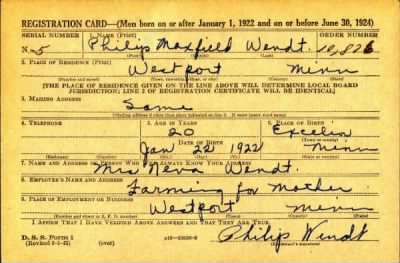 REGISTRATION CARD—(Men born on or after January 1, 1922 and on or before June 30, 1924)
SERIAL NUMBER 1. NAME (Print) ORDER NUMBER
N-5 Philip Maxfield Wendt. 12,826
(First) (Middle) (Last)
2. PLACE OF RESIDENCE (Print)
Westport Minn
(Number and street) (Town, township, village, or city) (County) (State)
[THE PLACE OF RESIDENCE GIVEN ON THE LINE ABOVE WILL DETERMINE LOCAL BOARD
JURISDICTION; LINE 2 OF REGISTRATION CERTIFICATE WILL BE IDENTICAL]
3. MAILING ADDRESS
Same
4. TELEPHONE 5. AGE IN YEARS 6. PLACE OF BIRTH
20
DATE OF BIRTH
Jan 22 1922 Minn
(Exchange) (Number) (Mo.) (Day) (Yr.) (State or country)
7. NAME AND ADDRESS OF PERSON WHO WILL ALWAYS KNOW YOUR ADDRESS
Mrs Neva Wendt.
8. EMPLOYER'S NAME AND ADDRESS
Farming for Mother
9. PLACE OF EMPLOYMENT OR BUSINESS
Westport Minn
(Number and street or R. F. D. number) (Town) (County) (State)
I AFFIRM THAT I HAVE VERIFIED ABOVE ANSWERS AND THAT THEY ARE TRUE.
D. S. S. Form 1 Philip Wendt
(over) (Registrant's signature)